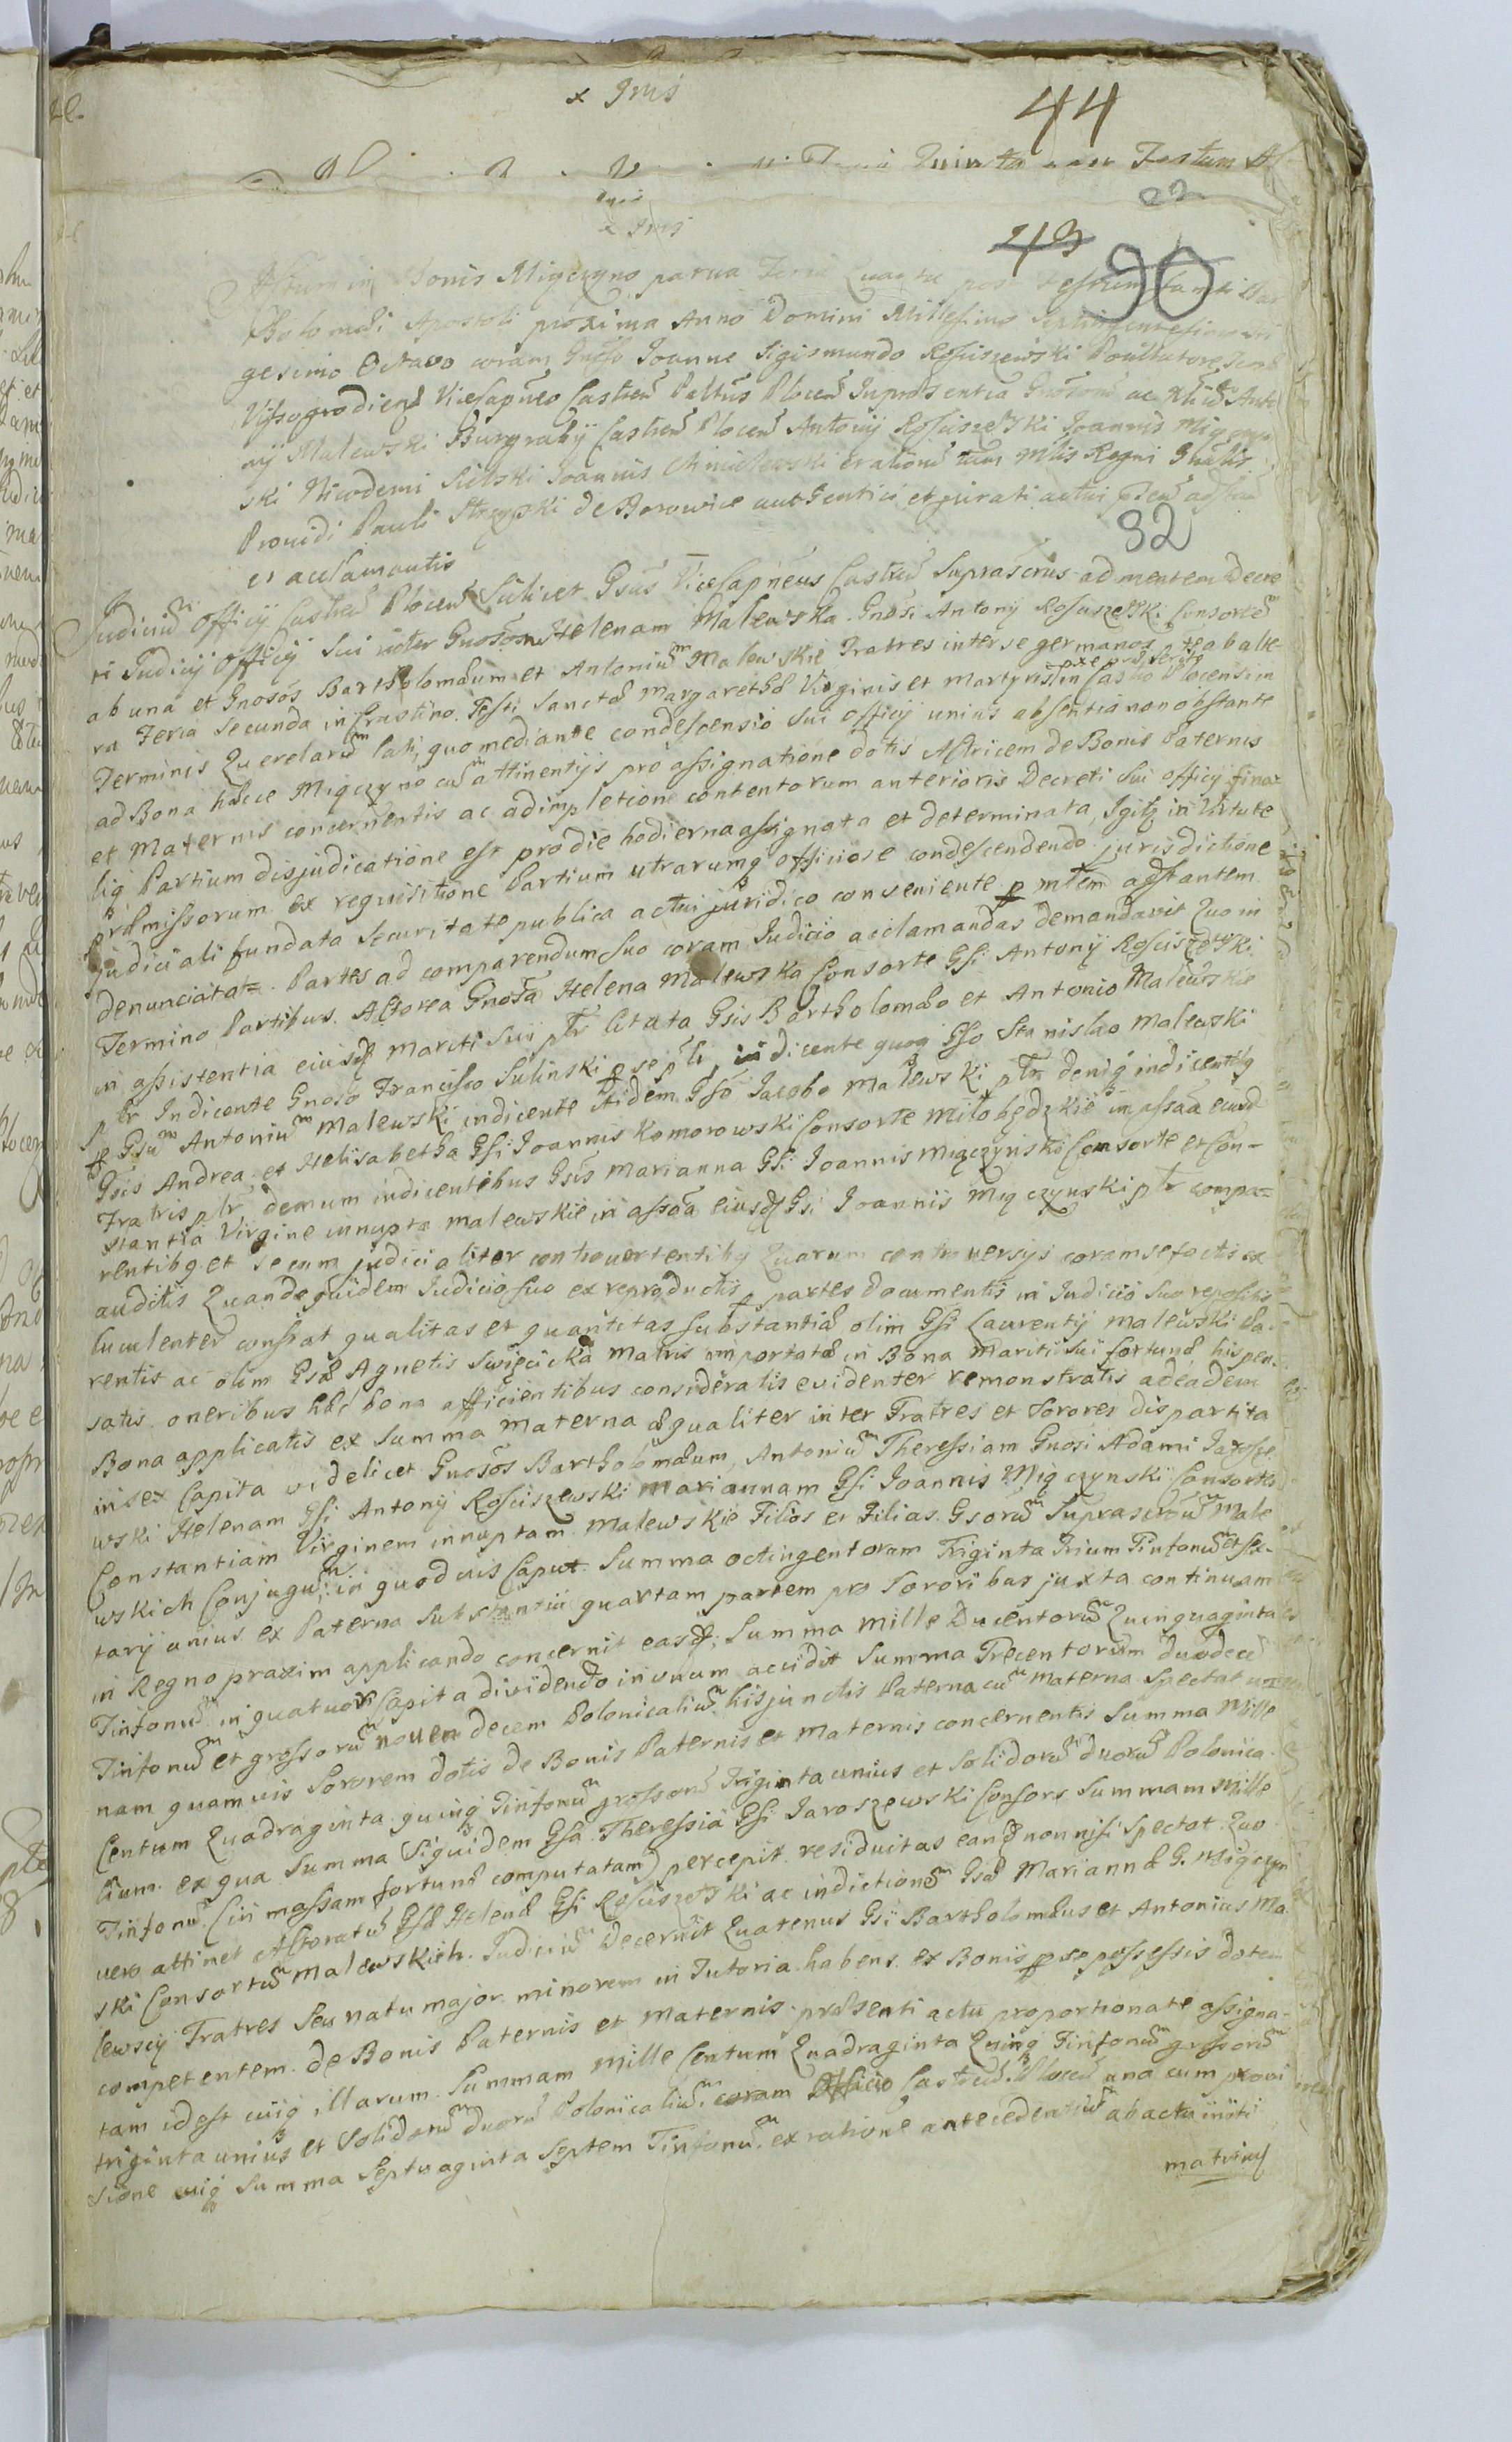 x Jmś
44
Quinta Festum
22
x Jmś
43
90
Actum in Bonis Miączyno parva Feria Quarta post Festum Sancti Bar
tholomæi Apostoli proxima Anno Domini Millesimo Septingentesimo
gesimo Octavo coram Gnoso Joanne Sigismundo Rosciszewski
Vissogrodiens Vicescapneo Castren Paltūs Plocen In præsentia Gnosorū ac Anto
nij Malewski Burgrabij Castren Plocen Antonij Rosciszewski Joannis Miączyn
ski Nicodemi Joannis Chmielewski Regni Gnalis
Providi Pauli de Borowice authentici et jurati actui adstan
et acclamantis
32
Judiciū Officij Castren Plocen Scilicet Gsus Vicescapneus Castren Suprascrus ad mentem Decre
ti Judicij Officij Sui inter Gnosam Helenam Malewska Gnosi Antonij Rosciszewski Consortē
ab una et Gnosos Bartholomæum et Antoniū Malewskie Fratres inter se germanos ex præscripto ab alte-
ra Feria Secunda in Crastino Festi Sanctæ Margarethæ Virginis et Martyris in Castro Plocensi in
Terminis Querelarū lati, quo mediante condescensio sui officij unius absentia non obstante
ad Bona hæcce Miączyno cū attinentijs pro assignatione dotis Actricem de Bonis Paternis
et Maternis concernentis ac adimpletione contentorum anterioris Decreti sui officij fina-
liq Partium disjudicatione est pro die hodierna assignata et determinata, Igitq in Virtute
Præmissorum ex requisitione Partium utrarumq officiose condescendendo jurisdictione
judiciali fundata Securitate publica actui juridico conveniente p mlem adstantem
denunciata. Partes ad comparendum suo coram Judicio acclamandas demandavit Quo in
Termino Partibus. Actorea Gnosa Helena Malewska Consorte Gsi Antonij Rosciszewski
in assistentia eiusd Mariti Sui plr Citata Gsis Bartholomæo et Antonio Malewskie
plr Indicente Gnoso Francisco Sulinski p se plr, indicente quoq Gso Stanislao Malewski
p Gsū Antoniū Malewski indicente itidem Gso Jacobo Malewski plr deniq indicentibq
Gsis Andrea et Helisabetha Gsi Joannis Komorowski Consorte Miłobędzkie in assa eiusd
Fratris plr demum indicentibus Gsis Marianna Gsi Joannis Miączynski Consorte et Con-
stantia Virgine innupta Malewskie in assa eiusd Gsi Joannis Miączynski plr compa-
rentibq et secum judicialiter controvertentibq Quarum controversijs coram se factis ex
auditis Quandoquidem Judicio suo ex reproductis p partes documentis in Judicio suo repositis
luculenter constat qualitas et quantitas substantiæ olim Gsi Laurentij Malewski Pa-
rentis ac olim Gsæ Agnetis Swięcicka Matris importatæ in Bona Mariti sui fortunæ his pen-
satis oneribus hæc bona afficientibus consideratis evidenter remonstratis ad eadem
Bona applicatis ex Summa Materna æqualiter inter Fratres et Sorores dispartita
in sex Capita videlicet Gnosos Bartholomæum, Antoniū Theressiam Gnosi Adami Jarosze
wski Helenam Gsi Antonij Rosciszewski Mariannam Gsi Joannis Miączynski Consortes
Constantiam Virginem innuptam Malewskie Filios et Filias Gsorū Suprascrtū Male
wskich Conjugū, in quodvis Caput Summa octingentorum Triginta Trium Tinfonū et sex-
tarij unius ex Paterna Substantia quartam partem pro Sororibus juxta continuam
in Regno praxim applicando concernit easd, Summa Mille Ducentorū Quinquaginta
Tinfonū in quatuor Capita dividendo in unum accidit Summa Trecentorum duodece
Tinfonū et grossorū novem decem Polonicaliū hisjunctis Paterna cū Materna Spectat u-
nam quamvis Sororem dotis de Bonis Paternis et Maternis concernentis Summa Mille
Centum Quadraginta quinq Tinfonū grossorū Triginta unius et Solidorū duorū Polonica-
lium ex qua Summa Siquidem Gsa Theressia Gsi Jaroszewski Consors Summam Mille
Tinfonū (in massam fortunæ computatam) percepit residuitas eand nonnisi Spectat. Quo
vero attinet Actoratū Gsæ Helenæ Gsi Rosciszewski ac indictionū Gsæ Mariannæ G. Miączyn
ski Consortū Malewskich. Judiciū decernit Quatenus Gsi Bartholomæus et Antonius Ma
lewscy Fratres Seu natu major minorem in Tutoria habens ex Bonis p se possessis dotem
competentem de Bonis Paternis et Maternis præsenti actu proportionate assigna-
tam idest cuiq illarum Summam Mille Centum Quadraginta Quinq Tinfonū grossorū
triginta unius et Solidorū duorū Polonicaliū coram Officio Castren Plocen una cum provi
sione cuiq Summa Septuaginta Septem Tinfonū ex ratione antecedentiū ab actu initi
matrimj